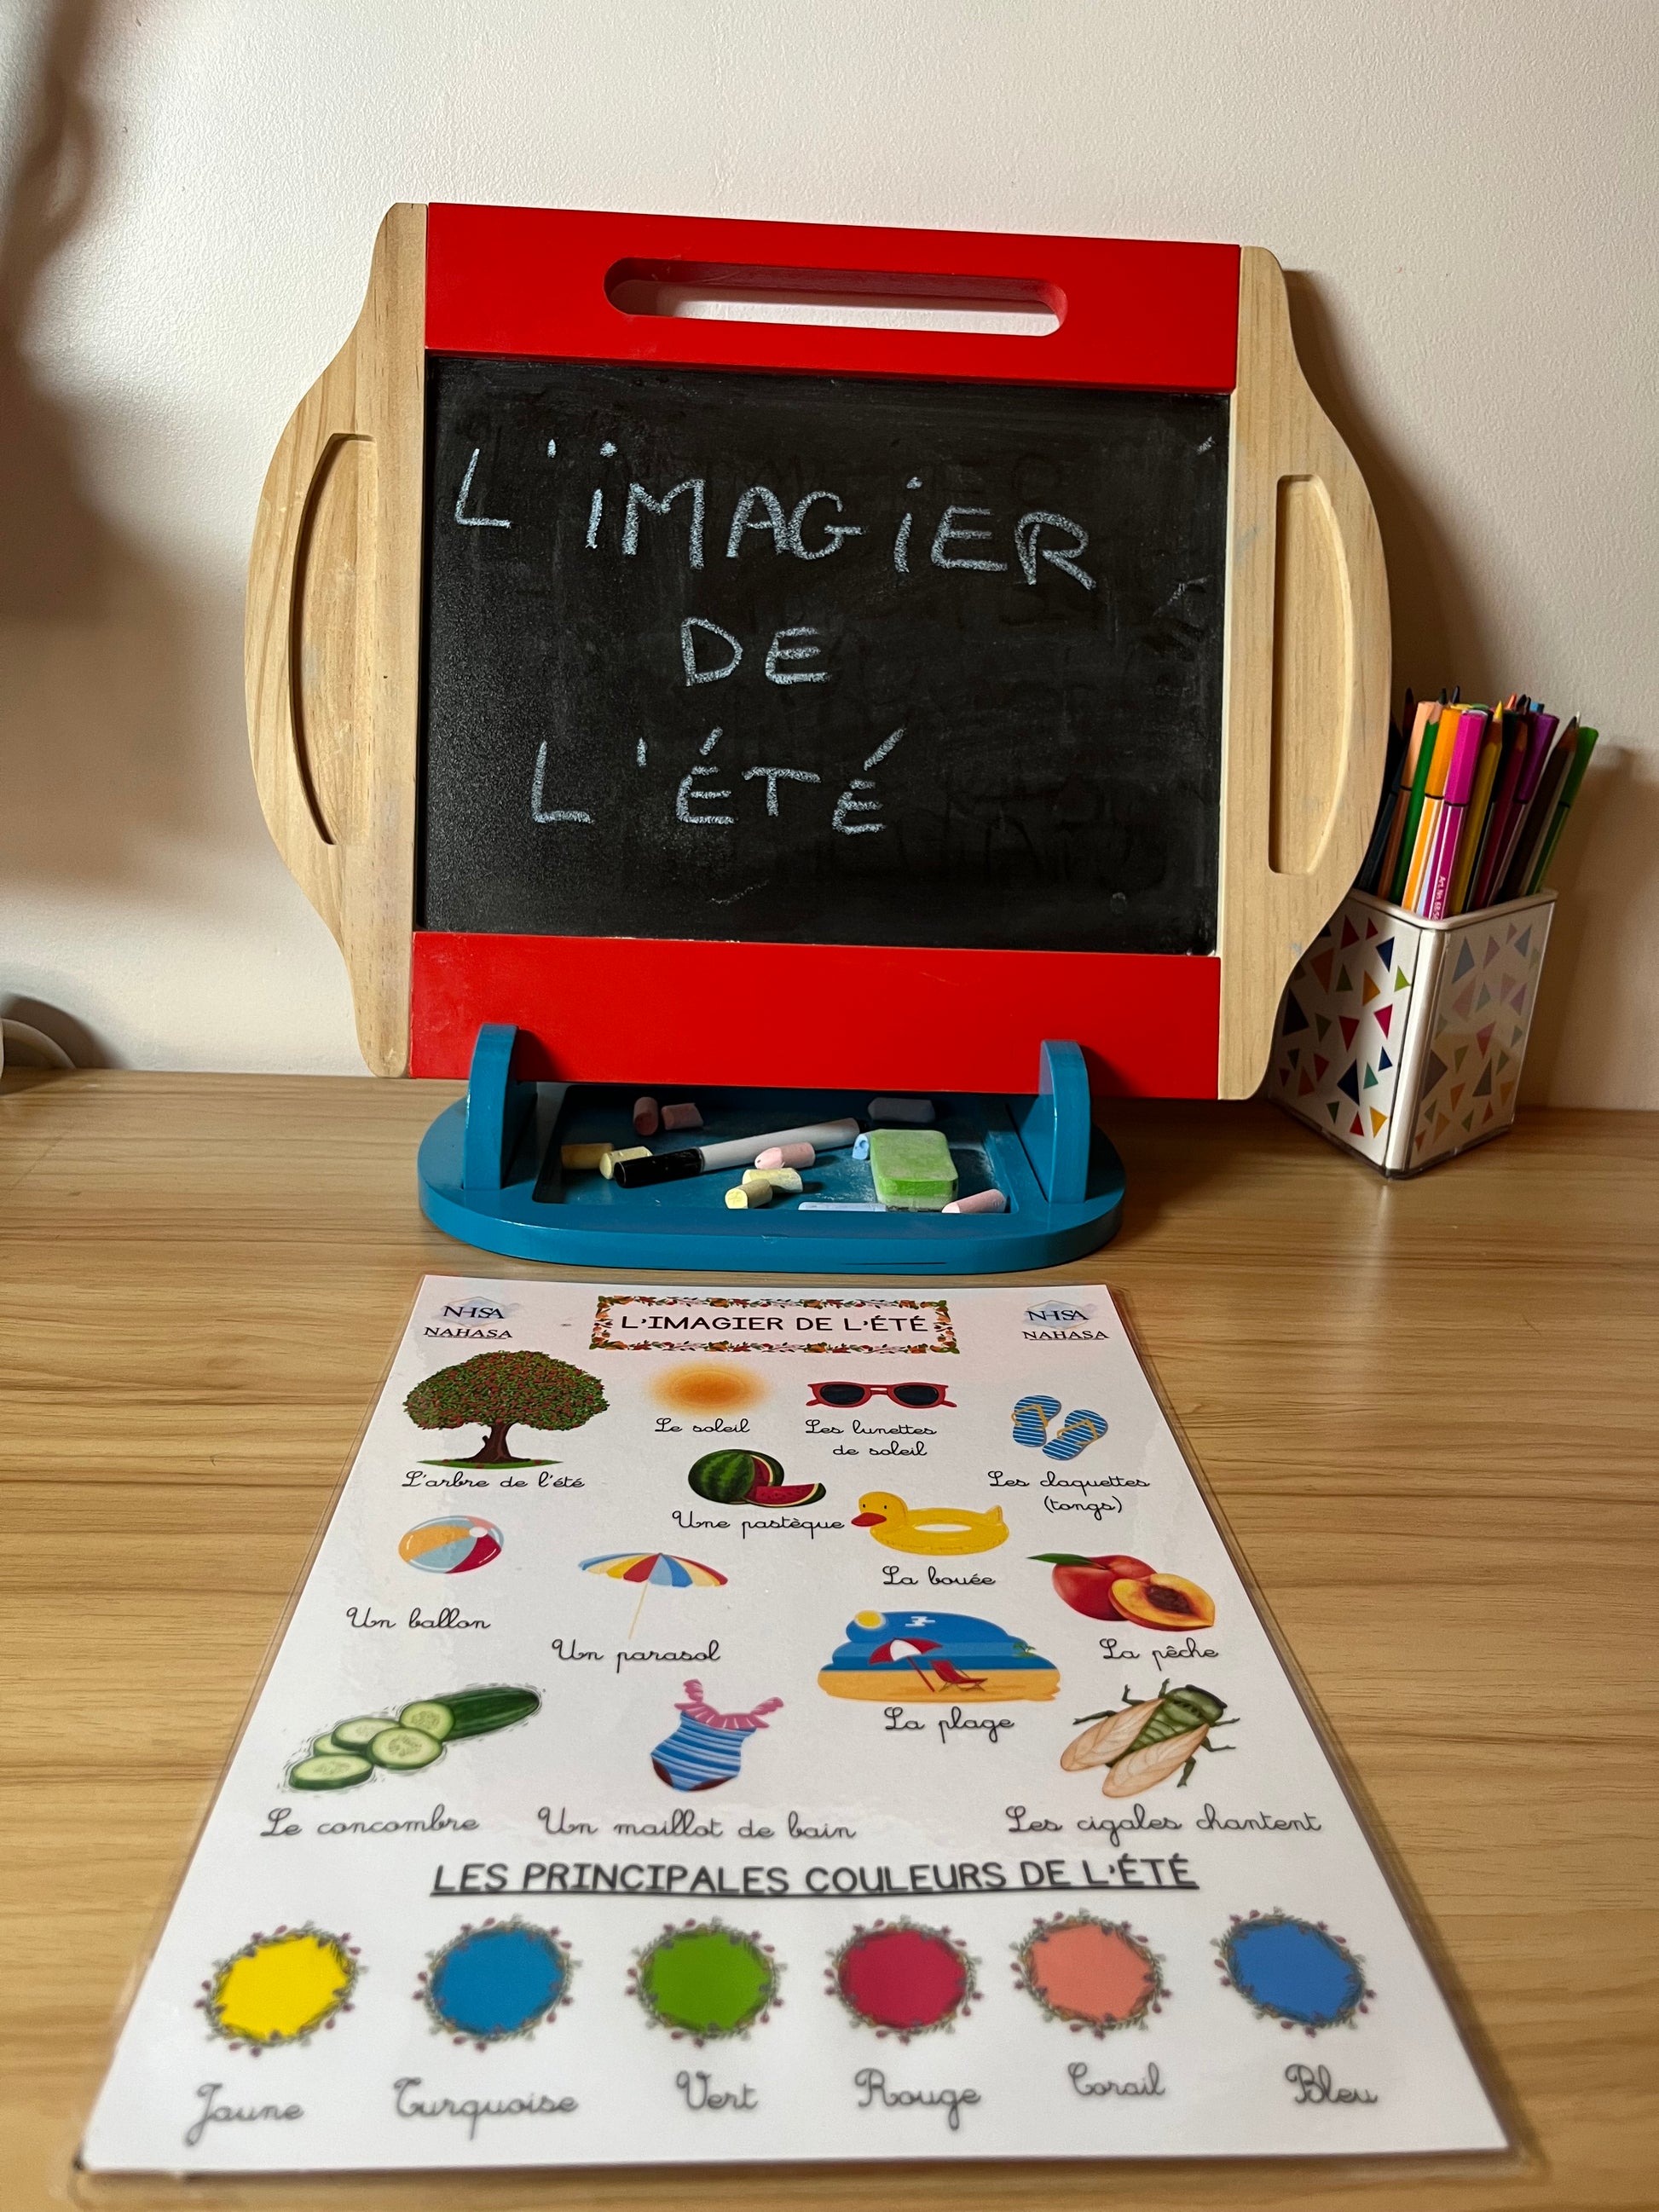 L'iMAGiER
DE
L'ÉTÉ
NHSA
NAHASA
L'IMAGIER DE L'ÉTÉ
NHSA
NAHASA
L'arbre de l'été
Le soleil
Les lunettes
de soleil
Les claquettes
(tongs)
Une pastèque
La bouée
Un ballon
Un parasol
La pêche
La plage
Le concombre
Un maillot de bain
Les cigales chantent
LES PRINCIPALES COULEURS DE L'ÉTÉ
Jaune
Turquoise
Vert
Rouge
Corail
Bleu